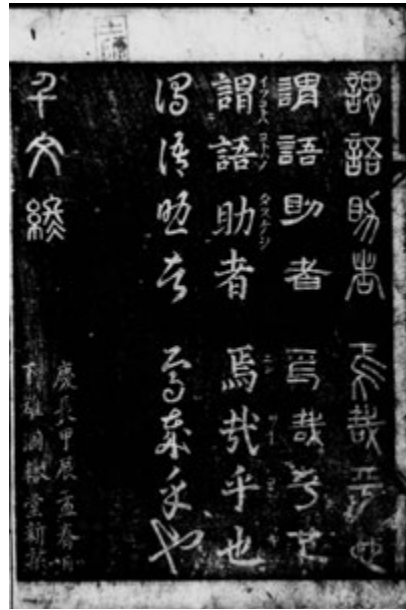 謂語助者 焉哉乎也
謂語助者 焉哉乎也
謂語助者 焉哉乎也
謂語助者 焉哉乎也
千文終
慶長甲辰孟春
涸轍堂新